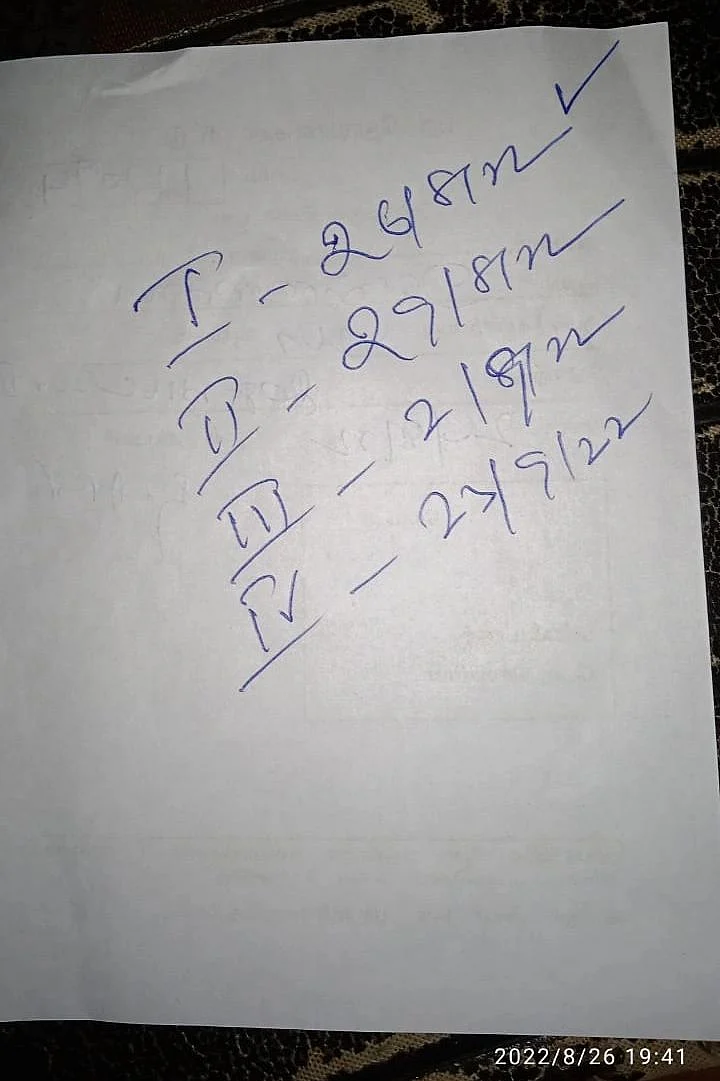 I - 26/8/22 ✓
II - 29/8/22
III - 2/9/22
IV - 23/9/22
2022/8/26 19:41